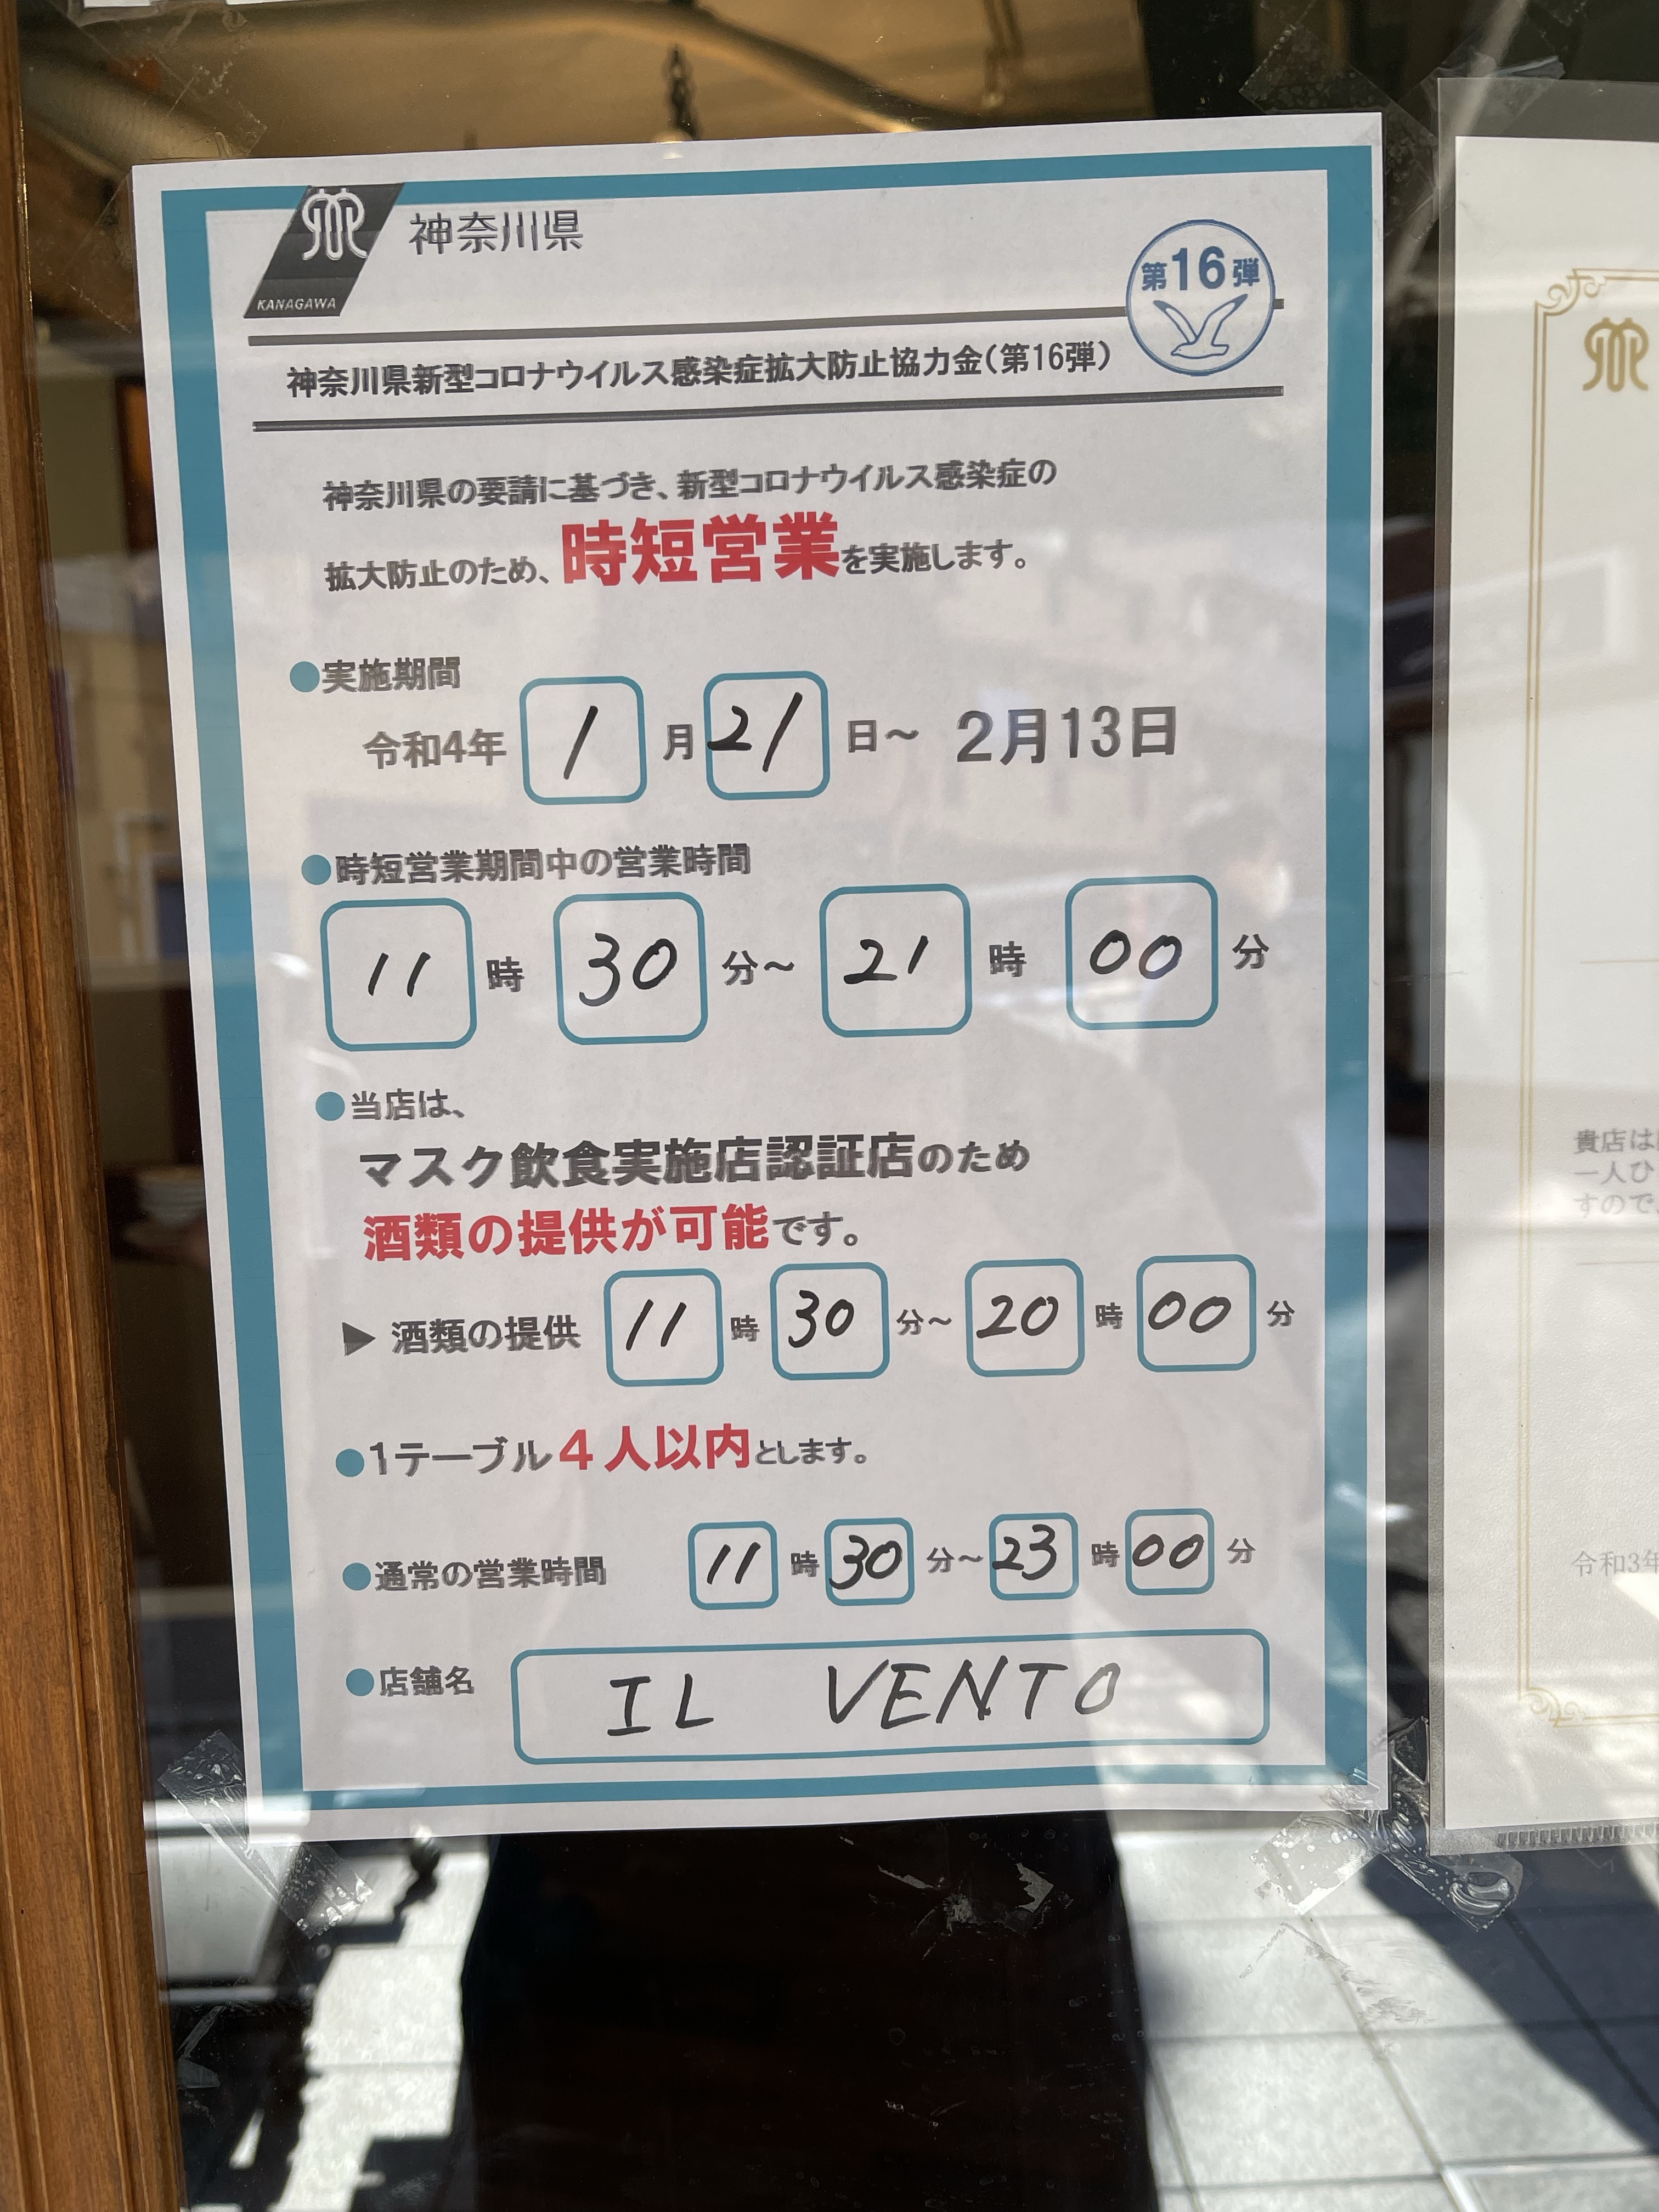 神奈川県
KANAGAWA
第16弾
神奈川県新型コロナウイルス感染症拡大防止協力金(第16弾)
神奈川県の要請に基づき、新型コロナウイルス感染症の
拡大防止のため、時短営業を実施します。
●実施期間
令和4年 1月21日~ 2月13日
●時短営業期間中の営業時間
11時30分~21時00分
●当店は、
マスク飲食実施店認証店のため
酒類の提供が可能です。
▶ 酒類の提供 11時30分~20時00分
●1テーブル4人以内とします。
●通常の営業時間 11時30分~23時00分
●店舗名 IL VENTO
貴店は
一人ひ
すので、
令和3年